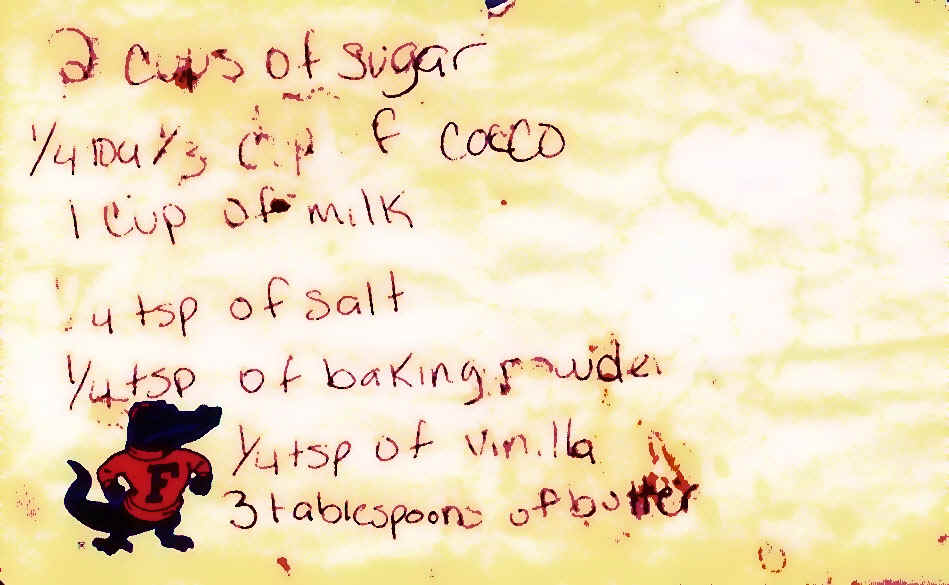 2 cups of sugar
1/4 to 1/3 cup f cocco
1 cup of milk
1/4 tsp of salt
1/4 tsp of baking powder
1/4 tsp of vinilla
3 tablespoons of butter
F